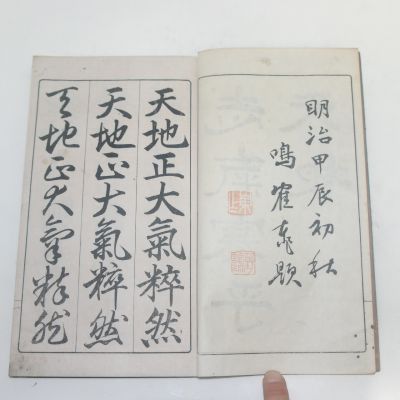 明治甲辰初秋
鳴隺題
天地正大氣粹然
天地正大氣粹然
天地正大氣粹然